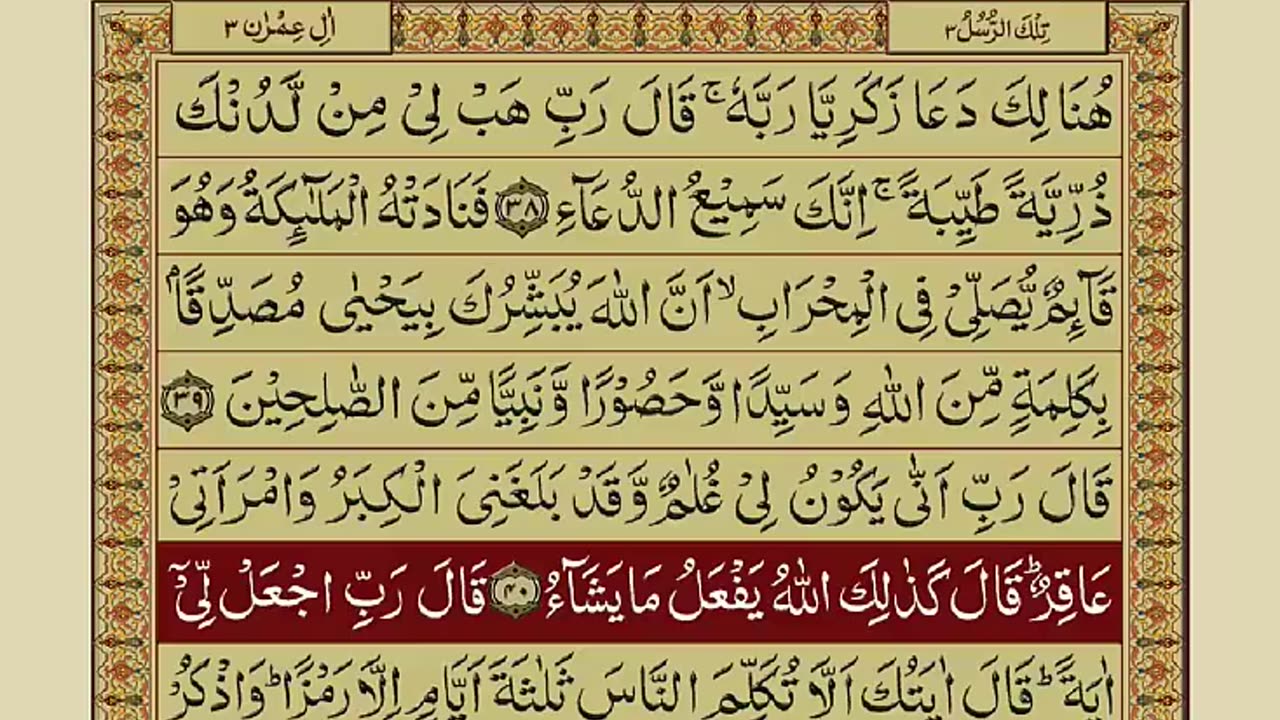 تِلْكَ الرُّسُلُ ٣
اٰلِ عِمْرٰن ٣
هُنَالِكَ دَعَا زَكَرِيَّا رَبَّهٗ ۚ قَالَ رَبِّ هَبْ لِيْ مِنْ لَّدُنْكَ
ذُرِّيَّةً طَيِّبَةً ۚ اِنَّكَ سَمِيْعُ الدُّعَآءِ ﴿٣٨﴾ فَنَادَتْهُ الْمَلٰٓئِكَةُ وَهُوَ
قَآئِمٌ يُّصَلِّيْ فِي الْمِحْرَابِ ۙ اَنَّ اللّٰهَ يُبَشِّرُكَ بِيَحْيٰى مُصَدِّقًاۢ
بِكَلِمَةٍ مِّنَ اللّٰهِ وَسَيِّدًا وَّحَصُوْرًا وَّنَبِيًّا مِّنَ الصّٰلِحِيْنَ ﴿٣٩﴾
قَالَ رَبِّ اَنّٰى يَكُوْنُ لِيْ غُلٰمٌ وَّقَدْ بَلَغَنِيَ الْكِبَرُ وَامْرَاَتِيْ
عَاقِرٌ ؕ قَالَ كَذٰلِكَ اللّٰهُ يَفْعَلُ مَا يَشَآءُ ﴿٤٠﴾ قَالَ رَبِّ اجْعَلْ لِّيْٓ
اٰيَةً ؕ قَالَ اٰيَتُكَ اَلَّا تُكَلِّمَ النَّاسَ ثَلٰثَةَ اَيَّامٍ اِلَّا رَمْزًا ؕ وَاذْكُرْ